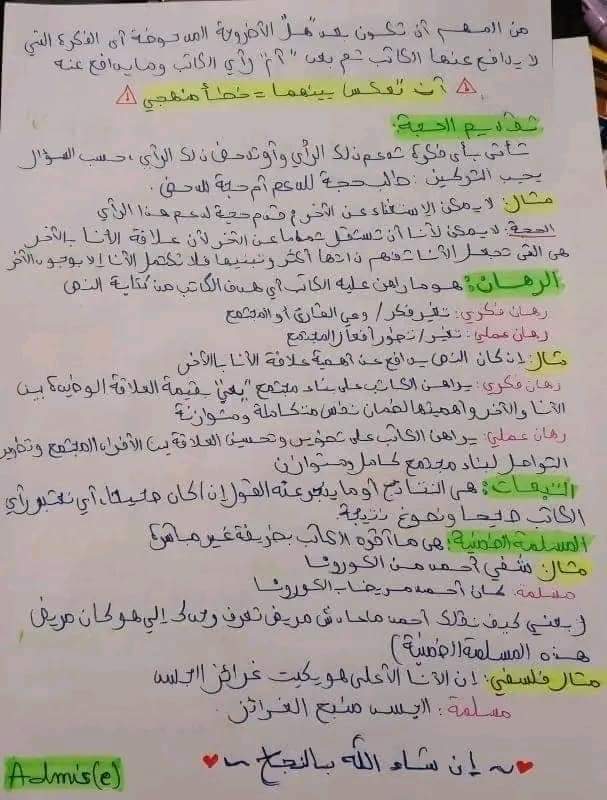 من المهم أن تكون بعد "هل" الأطروحة المدحوضة أي الفكرة التي
لا يدافع عنها الكاتب ثم بعد "أم" رأي الكاتب وما يدافع عنه
⚠ أن تعكس بينهما = خطأ منهجي ⚠
تقديم الحجة:
تأتي بأي فكرة تدعم ذلك الرأي و/أو تدحض ذلك الرأي، حسب السؤال
يجب التركيز: طالب حجة للدعم أم حجة للدحض.
مثال: لا يمكن الاستغناء عن الآخر، قدم حجة لدعم هذا الرأي
الحجة: لا يمكن لأنا أن تستقل تماما عن الآخر لأن علاقة الأنا بالآخر
هي التي تجعل الأنا تفهم ذاتها أكثر وتبنيها فلا تكتمل الأنا إلا بوجود الآخر
الرهان: هو ما راهن عليه الكاتب أي هدف الكاتب من كتابة النص
رهان فكري: تغير فكر / وعي القارئ أو المجتمع
رهان عملي: تغير / تطور أفعال المجتمع
مثال: إن كان النص يدافع عن أهمية علاقة الأنا بالآخر
رهان فكري: يراهن الكاتب على بناء مجتمع "يعي" بقيمة العلاقة الوطيدة بين
الأنا والآخر وأهميتها لضمان نفس متكاملة ومتوازنة
رهان عملي: يراهن الكاتب على تطوير وتحسين العلاقة بين الأفراد المجتمع وتطوير
التواصل لبناء مجتمع كامل ومتوازن
التبعات: هي النتائج أو ما ينجر عنه القول إن كان صحيحا، أي نعتبر رأي
الكاتب صحيحا ونصوغ نتيجة
المسلمة الضمنية: هي ما أقره الكاتب بطريقة غير مباشرة
مثال: شفي أحمد من الكورونا
مسلمة: كان أحمد مريضا بالكورونا
(يعني كيف نقلك أحمد ماعادش مريض تعرف وحدك إلي هو كان مريض
هذه المسلمة الضمنية)
مثال فلسفي: إن الأنا الأعلى هو يكبت غرائز الجسد
مسلمة: الجسد منبع الغرائز.
♥ ~ إن شاء الله بالنجاح ~ ♥
Admis(e)